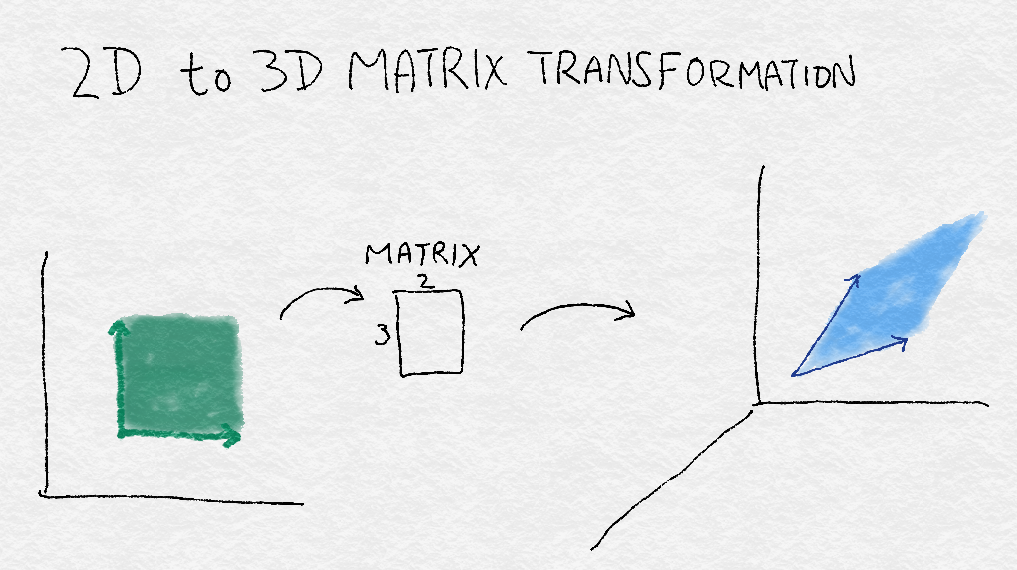 2D to 3D MATRIX TRANSFORMATION
MATRIX
2
3